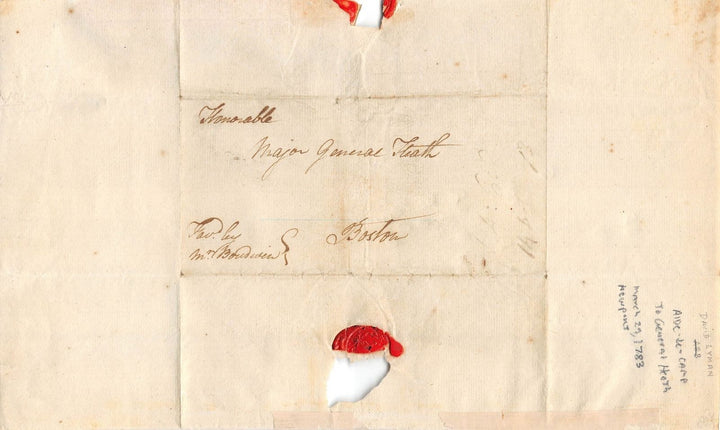 Honorable
Major General Heath
Favd. by
Mr. Boudwien
Boston
DAVID LYMAN
AIDE-de-CAMP
To General Heath
March 29, 1783
Newport